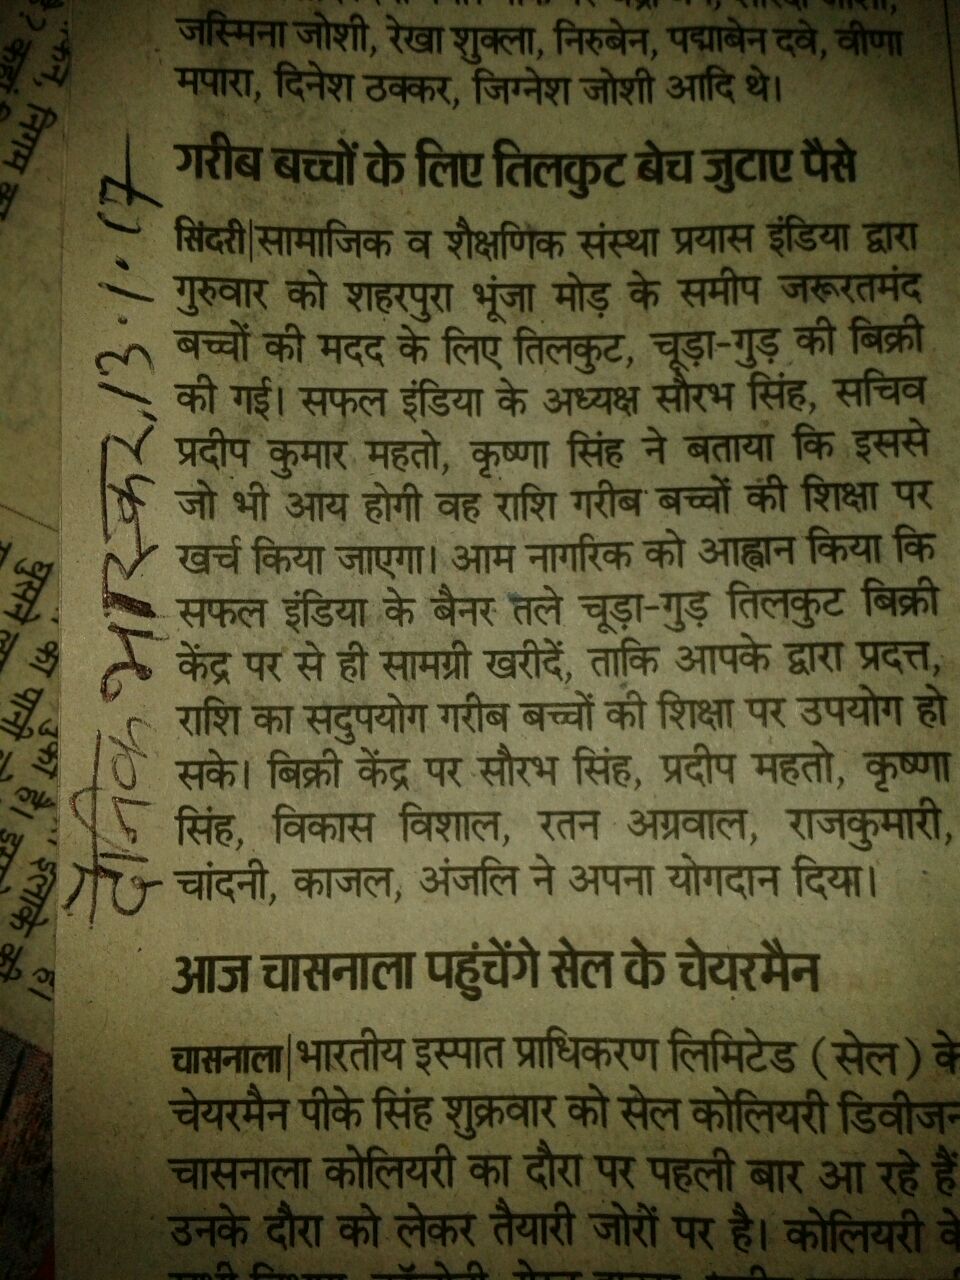 जस्मिना जोशी, रेखा शुक्ला, निरुबेन, पद्माबेन दवे, वीणा
मपारा, दिनेश ठक्कर, जिग्नेश जोशी आदि थे।
गरीब बच्चों के लिए तिलकुट बेच जुटाए पैसे
सिंदरी|सामाजिक व शैक्षणिक संस्था प्रयास इंडिया द्वारा
गुरुवार को शहरपुरा भूंजा मोड़ के समीप जरूरतमंद
बच्चों की मदद के लिए तिलकुट, चूड़ा-गुड़ की बिक्री
की गई। सफल इंडिया के अध्यक्ष सौरभ सिंह, सचिव
प्रदीप कुमार महतो, कृष्णा सिंह ने बताया कि इससे
जो भी आय होगी वह राशि गरीब बच्चों की शिक्षा पर
खर्च किया जाएगा। आम नागरिक को आह्वान किया कि
सफल इंडिया के बैनर तले चूड़ा-गुड़ तिलकुट बिक्री
केंद्र पर से ही सामग्री खरीदें, ताकि आपके द्वारा प्रदत्त,
राशि का सदुपयोग गरीब बच्चों की शिक्षा पर उपयोग हो
सके। बिक्री केंद्र पर सौरभ सिंह, प्रदीप महतो, कृष्णा
सिंह, विकास विशाल, रतन अग्रवाल, राजकुमारी,
चांदनी, काजल, अंजलि ने अपना योगदान दिया।
दैनिक भास्कर, 13.1.17
आज चासनाला पहुंचेंगे सेल के चेयरमैन
चासनाला|भारतीय इस्पात प्राधिकरण लिमिटेड (सेल) के
चेयरमैन पीके सिंह शुक्रवार को सेल कोलियरी डिवीजन
चासनाला कोलियरी का दौरा पर पहली बार आ रहे हैं
उनके दौरा को लेकर तैयारी जोरों पर है। कोलियरी के